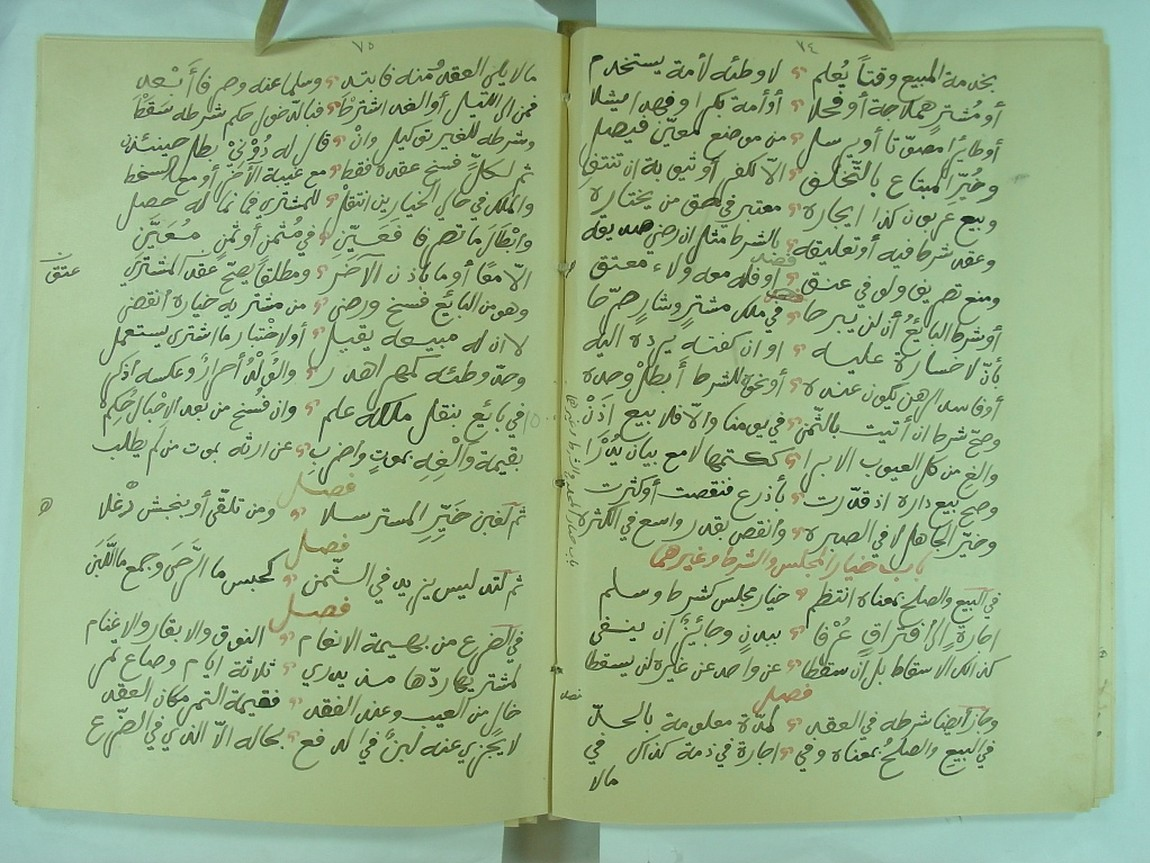 ٧٤
بخدمة المبيع وقتاً يُعلم ؟ لا وطئه لأمة يستخدم
أو مُشترٍ هملاجة أو فحلا ؟ أو أمة بكرا وفهدا مثلا
أو طائرا مصوّتا أو يرسل ؟ من موضع معيّن فيصل
وخُيّر المبتاع بالتّخلف ؟ الا كفر أو ثيوبة ان تنتفي
وبيع عربون كذا ايجاره ؟ معتبر في حق من يختاره
وعقد شرطا فيه أو تعليقه ؟ بالشرط مثل ان رضي صديقه
ومنع تصريف ولو في عتق ؟ أو فله معه ولاء معتق
أو شرط البائعُ أن لن يبرحا ؟ في ملك مشترٍ وشارٍ صرّحا
بأنّ لا خسارة عليه ؟ أو ان كفته يرده اليه
أو فاسد الرهن يكون عنده ؟ أو نحوه للشرط أبطلْ وحده
وصحّ شرط ان أتيت بالثّمن ؟ في يومنا والّا فلا بيع اذنْ
والغ من كل العيوب الابرا ؟ ككتمها لا مع بيان يُدْرا
وصح بيع داره اذ قدّرت ؟ بأذرع فنقصت أو كثرت
وخيّر الجاهل لا في الصبره ؟ وانقص بقدر واسع في الكثره
باب خيار المجلس والشرط وغيرهما
في البيع والصلح بمعناه انتظم ؟ خيار مجلس كشرط وسلم
اجارةٍ إلى افتراقٍ عُرْفا ؟ ببدنٍ وجائزٌ ان ينفى
كذلك الاسقاط بل ان سقطا ؟ عن واحد عن غيره لن يسقطا
فصل
وجاز أيضا شرطه في العقد ؟ لمدّة معلومة بالحدّ
في البيع والصلحُ بمعناه وفي ؟ اجارة في ذمة كذاك في
مالا
٧٥
مالا يلي العقد ومنه فابتد ؟ وسلما عنه وصرفا أبعد
فمن الى الليل أو الغد اشترط ؟ فبالدخول حكم شرطه سَقَطْ
وشرطه للغير توكيل وانْ ؟ قال له دُوْنيْ بطل حينئذن
ثم لكلٍّ فسخ عقده فقط ؟ مع غيبة الآخر أو مع السخط
والملك في حالي الخيارين انتقلْ ؟ للمشتري فما نما له حصل
وابْطل ما تصرفا فعيّن ؟ في مُثمن أو ثمنٍ مُعَيَّن
الّا معًا أو ما بإذن الآخر ؟ ومطلقًا يصحّ عتق المشتري
وهو من البائع فسخ ورضي ؟ من مشتر به خياره انقضى
لا ان له مبيعه يقبل ؟ أو لاختبار ما اشترى يستعمل
وحدّ وطئه كمهر اهدر ؟ والولْدُ أحرارٌ وعكسه اذكر
في بائع بنقل ملكه علم ؟ وان فُسخ من بعد الاحبال حُكِمْ
بقيمة والْغِهِ بموتٍ واضربِ ؟ عن ارثه بموت من لم يطلب
فصل
ثم لغبن خَيِّرِ المسترسلا ؟ ومن تلقّي أو بنجش دغلا
فصل
ثم لتدليس يزيد في الثّمن ؟ كحبس ما الرّحى وجمع ما اللّبَن
فصل
في الضرع من بهيمة الانعام ؟ النوق والابقار والاغنام
لمشتر بها ردّها مذ يدري ؟ ثلاثة ايام وصاع تمر
خال من العيب وعند الفقد ؟ فقيمة التمر مكان العقد
لا يُجزي عنه لبنٌ في الدفع ؟ بحاله الّا الذي في الضّرع
عتق